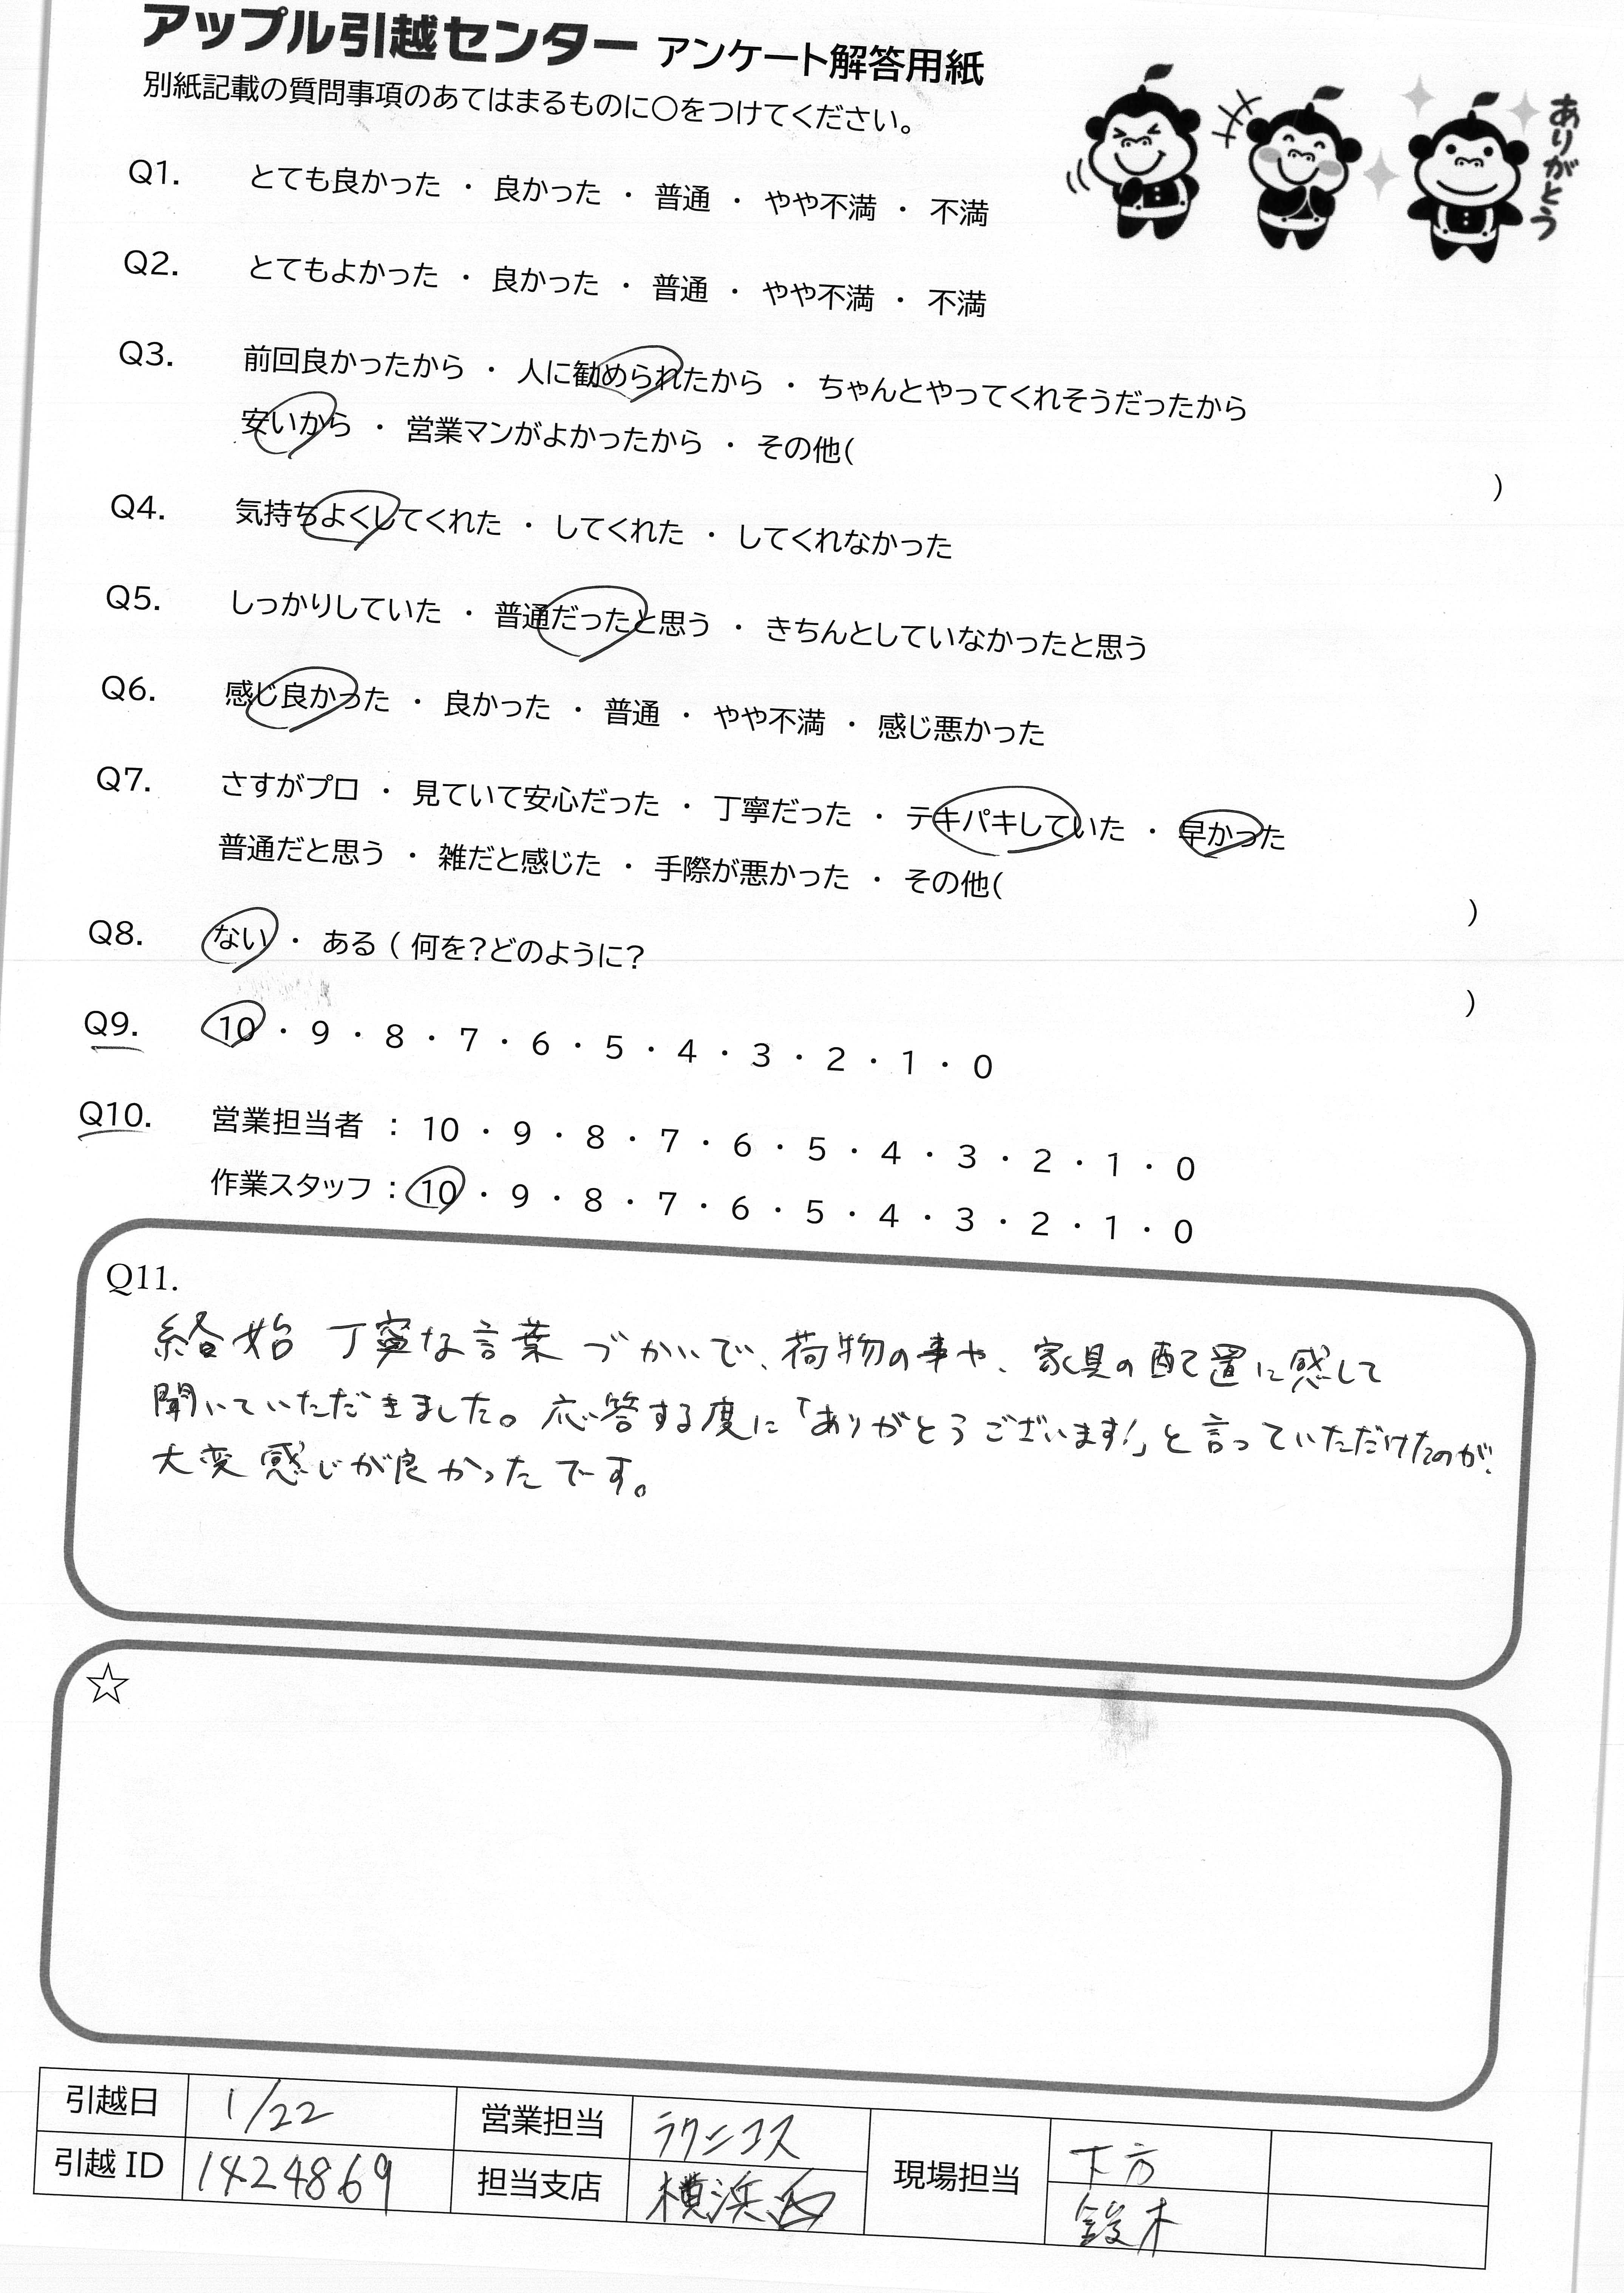 アップル引越センター アンケート解答用紙
別紙記載の質問事項のあてはまるものに〇をつけてください。
ありがとう
Q1. とても良かった ・ 良かった ・ 普通 ・ やや不満 ・ 不満
Q2. とてもよかった ・ 良かった ・ 普通 ・ やや不満 ・ 不満
Q3. 前回良かったから ・ 人に勧められたから ・ ちゃんとやってくれそうだったから
安いから ・ 営業マンがよかったから ・ その他( )
Q4. 気持ちよくしてくれた ・ してくれた ・ してくれなかった
Q5. しっかりしていた ・ 普通だったと思う ・ きちんとしていなかったと思う
Q6. 感じ良かった ・ 良かった ・ 普通 ・ やや不満 ・ 感じ悪かった
Q7. さすがプロ ・ 見ていて安心だった ・ 丁寧だった ・ テキパキしていた ・ 早かった
普通だと思う ・ 雑だと感じた ・ 手際が悪かった ・ その他( )
Q8. ない ・ ある ( 何を?どのように? )
Q9. 10 ・ 9 ・ 8 ・ 7 ・ 6 ・ 5 ・ 4 ・ 3 ・ 2 ・ 1 ・ 0
Q10. 営業担当者 : 10 ・ 9 ・ 8 ・ 7 ・ 6 ・ 5 ・ 4 ・ 3 ・ 2 ・ 1 ・ 0
作業スタッフ : 10 ・ 9 ・ 8 ・ 7 ・ 6 ・ 5 ・ 4 ・ 3 ・ 2 ・ 1 ・ 0
Q11.
始 丁寧な言葉づかいで、荷物の事や、家具の配置に感して
聞いていただきました。応答する度に「ありがとうございます!」と言っていただけたのが、
大変感じが良かったです。
☆
引越日 1/22 営業担当 ラクニコス 現場担当 下方
引越 ID 1424869 担当支店 横浜西 鈴木